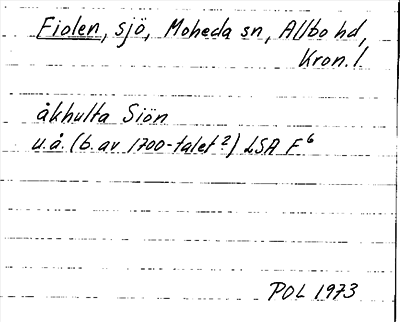 Fiolen, sjö, Moheda sn, Allbo hd,
Kron. l.
åkhulta Siön
u.å. (b. av 1700-talet ?) LSA F 6
POL 1973